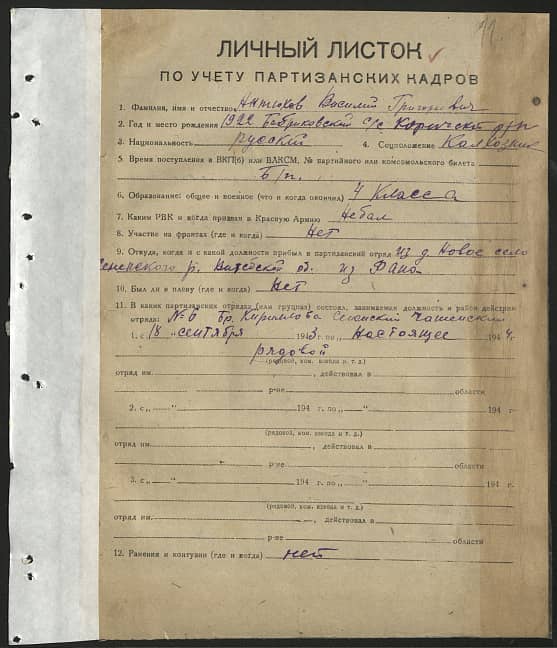 ЛИЧНЫЙ ЛИСТОК
ПО УЧЕТУ ПАРТИЗАНСКИХ КАДРОВ
1. Фамилия, имя и отчество Антюхов Василий Григорьевич
2. Год и место рождения 1922 Бобриковский с/с
3. Национальность русский 4. Соцположение Колхозник
5. Время поступления в ВКП(б) или ВЛКСМ, № партийного или комсомольского билета
Б/п.
6. Образование: общее и военное (что и когда окончил) 4 класса
7. Каким РВК и когда призван в Красную Армию Небал
8. Участие на фронтах (где и когда) Нет
9. Откуда, когда и с какой должности прибыл в партизанский отряд из д. Новое село
Сененского р. обл. из
10. Был ли в плену (где и когда) Нет
11. В каких партизанских отрядах (или группах) состоял, занимаемая должность и район действий
отряда: №6 Бр. Кириллова Сененский Чашенский
1. с „18 „ сентября 1943 г. по „ настоящее 1944 г.
рядовой
(рядовой, ком. взвода и т. д.)
отряд им. , действовал в
р-не области
2. с „ “ 194 г. по „ “ 194 г.
(рядовой, ком. взвода и т. д.)
отряд им. , действовал в
р-не области
3. с „ “ 194 г. по „ “ 194 г.
(рядовой, ком. взвода и т. д.)
отряд им. , действовал в
р-не области
12. Ранения и контузии (где и когда) нет